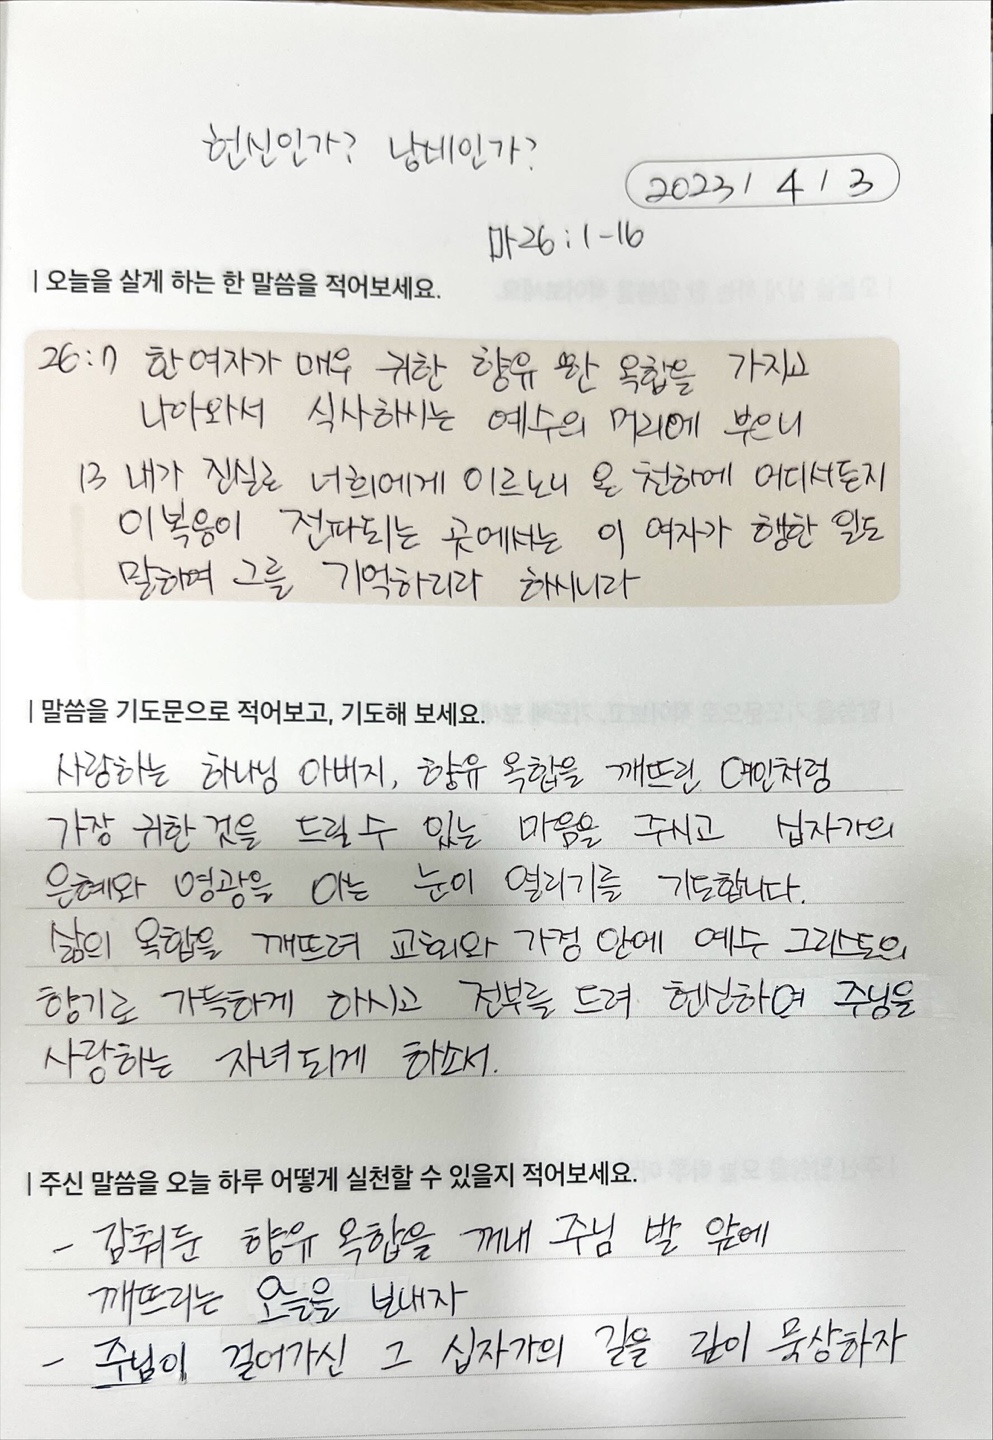 헌신인가? 낭비인가?
2023 / 4 / 3
마26:1-16
| 오늘을 살게 하는 한 말씀을 적어보세요.
26:7 한 여자가 매우 귀한 향유 한 옥합을 가지고
나아와서 식사하시는 예수의 머리에 부으니
13 내가 진실로 너희에게 이르노니 온 천하에 어디서든지
이 복음이 전파되는 곳에서는 이 여자가 행한 일도
말하여 그를 기억하리라 하시니라
| 말씀을 기도문으로 적어보고, 기도해 보세요.
사랑하는 하나님 아버지, 향유 옥합을 깨뜨린 여인처럼
가장 귀한 것을 드릴 수 있는 마음을 주시고 십자가의
은혜와 영광을 아는 눈이 열리기를 기도합니다.
삶의 옥합을 깨뜨려 교회와 가정 안에 예수 그리스도의
향기로 가득하게 하시고 전부를 드려 헌신하여 주님을
사랑하는 자녀 되게 하소서.
| 주신 말씀을 오늘 하루 어떻게 실천할 수 있을지 적어보세요.
- 감춰둔 향유 옥합을 꺼내 주님 발 앞에
깨뜨리는 오늘을 보내자
- 주님이 걸어가신 그 십자가의 길을 깊이 묵상하자